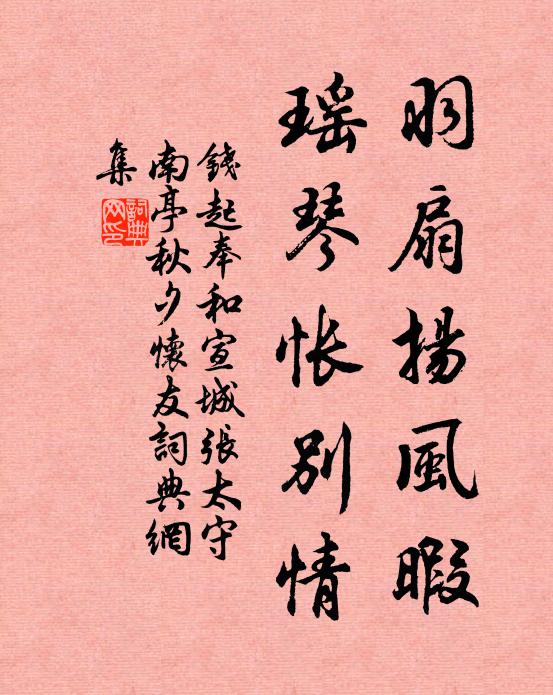 羽扇揚風暇
瑶琴悵別情
錢起奉和宣城張太守
南亭秋夕懷友詞典網
集
詞典
网印